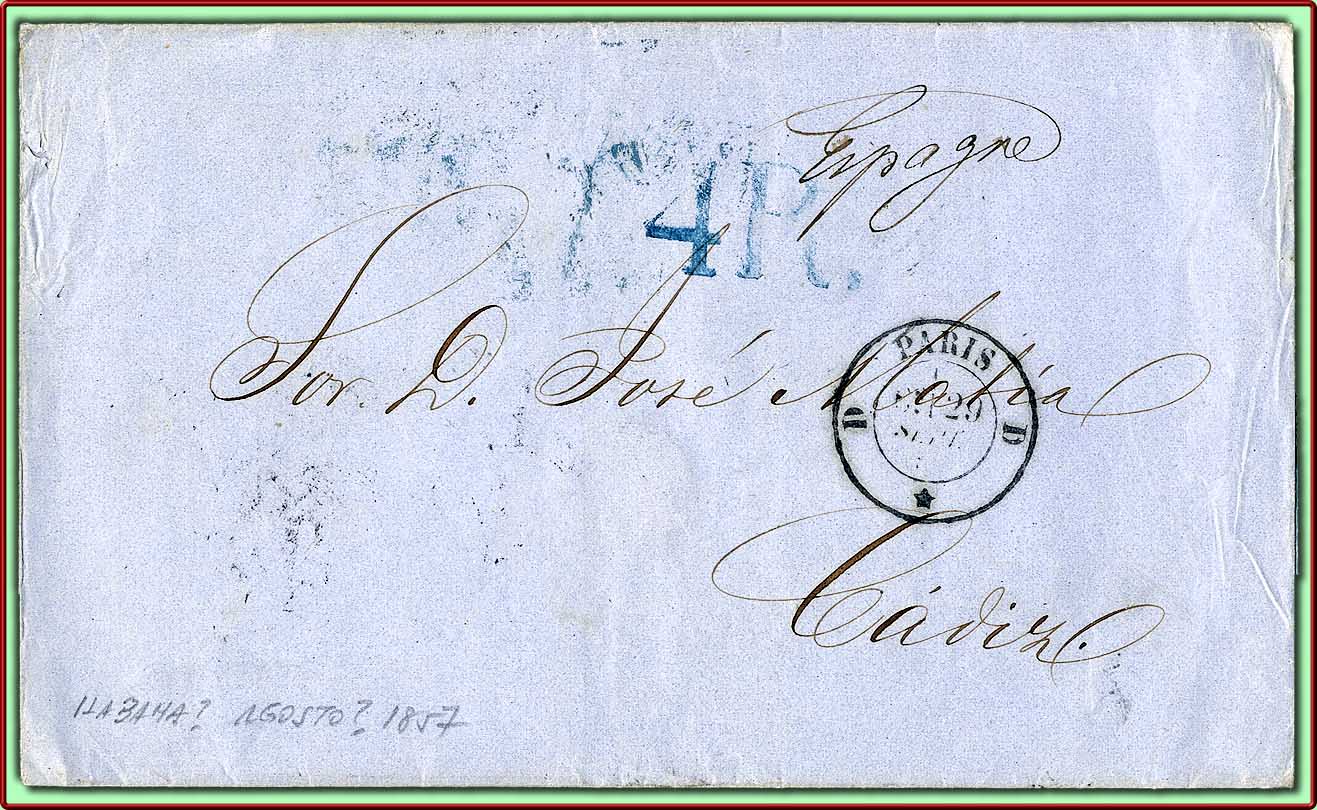 Espagne
4 R.
Sor. D. José Matia
PARIS
29
SEPT
D D
Cádiz.
HABANA? AGOSTO? 1857